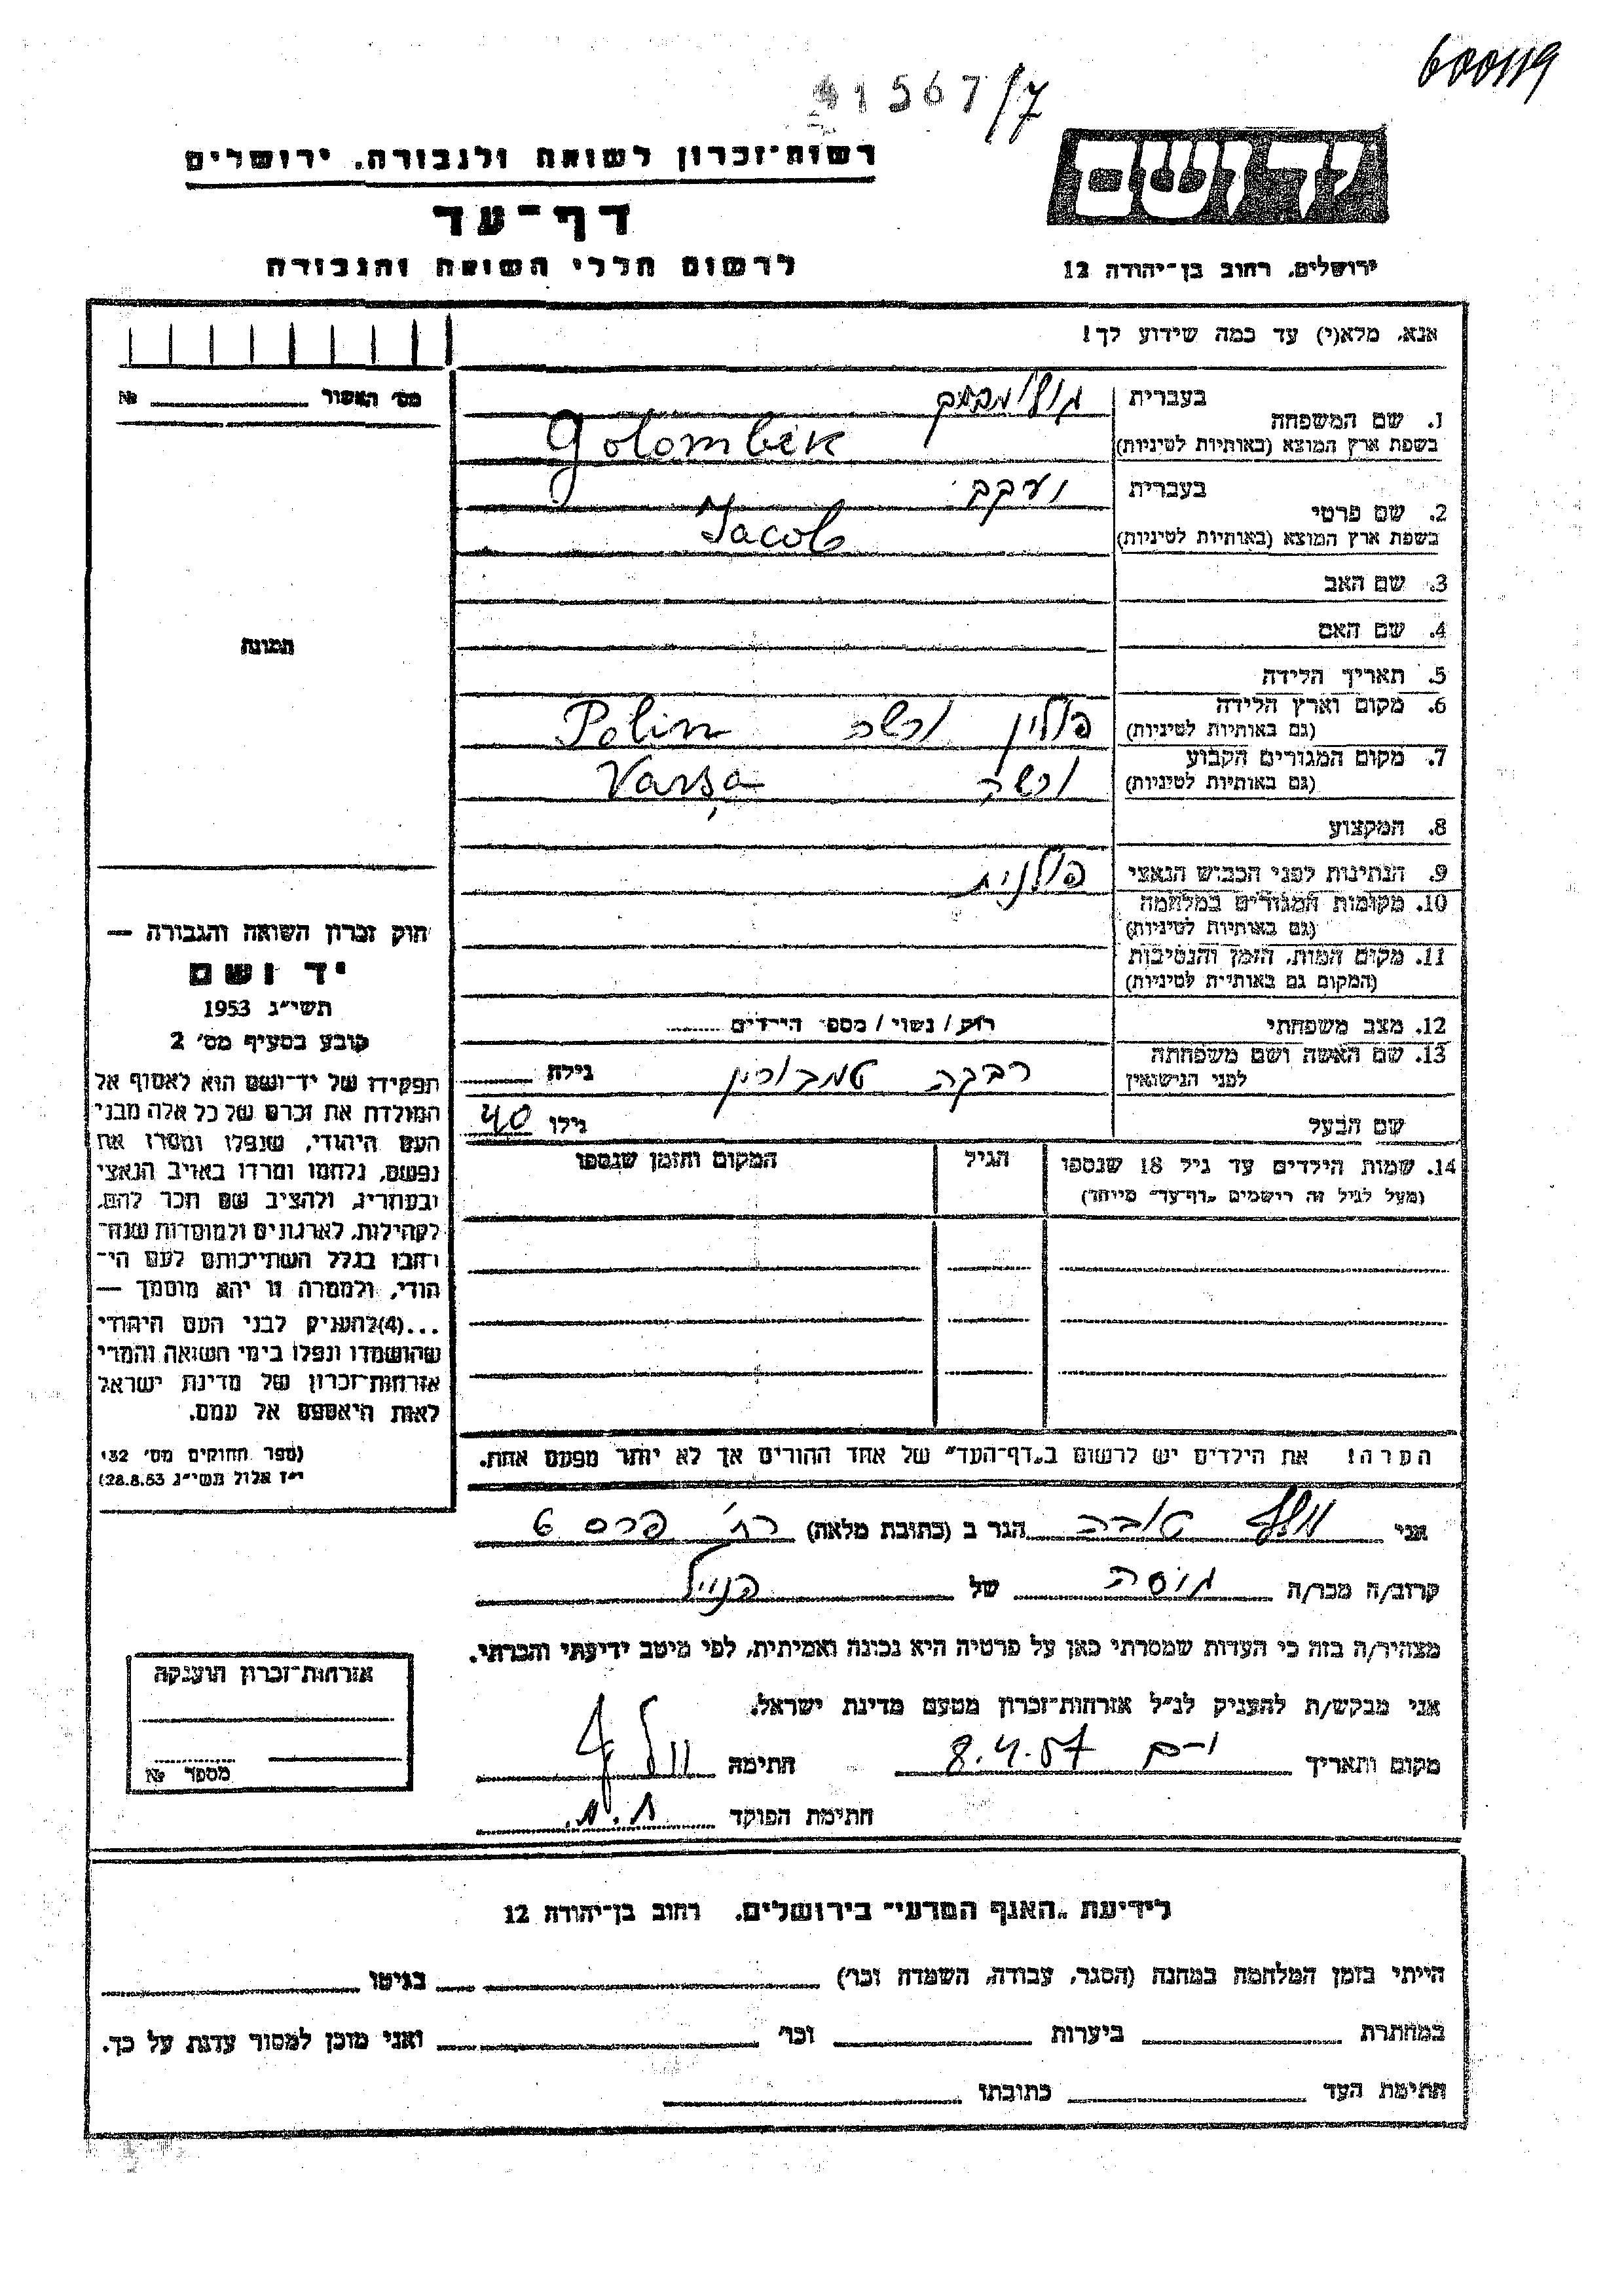 600119
41567/7
רשות־זכרון לשואה ולגבורה, ירושלים
יד ושם
דף־עד
לרשום חללי השואה והגבורה
ירושלים, רחוב בן־יהודה 12
אנא, מלא(י) עד כמה שידוע לך!
מס׳ האשור № 
1. שם המשפחה
בעברית
גולומבק
בשפת ארץ המוצא (באותיות לטיניות)
Golombek
2. שם פרטי
בעברית
יעקב
בשפת ארץ המוצא (באותיות לטיניות)
Jacob
3. שם האב
4. שם האם
תמונה
5. תאריך הלידה
6. מקום וארץ הלידה
(גם באותיות לטיניות)
פולין ורשה Polin
7. מקום המגורים הקבוע
(גם באותיות לטיניות)
ורשה Varşa
8. המקצוע
9. הנתינות לפני הכבוש הנאצי
פולנית
10. מקומות המגורים במלחמה
(גם באותיות לטיניות)
11. מקום המות, הזמן והנסיבות
(המקום גם באותיות לטיניות)
12. מצב משפחתי
רוק / נשוי / מספר הילדים
13. שם האשה ושם משפחתה
לפני הנישואין
רבקה גילה
שם הבעל
גילו 40
14. שמות הילדים עד גיל 18 שנספו
(מעל לגיל זה רישמים „דף־עד" מיוחד)
הגיל
המקום והזמן שנספו
הערה! את הילדים יש לרשום ב„דף־העד" של אחד ההורים אך לא יותר מפעם אחת.
חוק זכרון השואה והגבורה —
יד ושם
תשי״ג 1953
קובע בסעיף מס׳ 2
תפקידו של יד־ושם הוא לאסוף אל
המולדת את זכרם של כל אלה מבני
העם היהודי, שנפלו ומסרו את
נפשם, נלחמו ומרדו באויב הנאצי
ובעוזריו, ולהציב שם וזכר להם,
לקהילות, לארגונים ולמוסדות שנח־
רבו בגלל השתייכותם לעם הי־
הודי, ולמטרה זו יהא מוסמך —
...(4) להעניק לבני העם היהודי
שהושמדו ונפלו בימי השואה והמרי
אזרחות־זכרון של מדינת ישראל
לאות היאספם אל עמם.
(ספר החוקים מס׳ 132
י״ז אלול תשי״ג 28.8.53)
אני טובה הגר ב (כתובת מלאה) רח׳ פרס 6
קרוב/ה מכר/ה גיסה של הנ״ל
מצהיר/ה בזה כי העדות שמסרתי כאן על פרטיה היא נכונה ואמיתית, לפי מיטב ידיעתי והכרתי.
אני מבקש/ת להעניק לנ״ל אזרחות־זכרון מטעם מדינת ישראל.
מקום ותאריך י-ם 8.4.57 חתימה
חתימת הפוקד
אזרחות־זכרון הוענקה
מספר №
לידיעת „האגף המדעי" בירושלים, רחוב בן־יהודה 12
הייתי בזמן המלחמה במחנה (הסגר, עבודה, השמדה וכו׳) בגיטו
במחתרת ביערות וכו׳ ואני מוכן למסור עדות על כך.
חתימת העד כתובתו